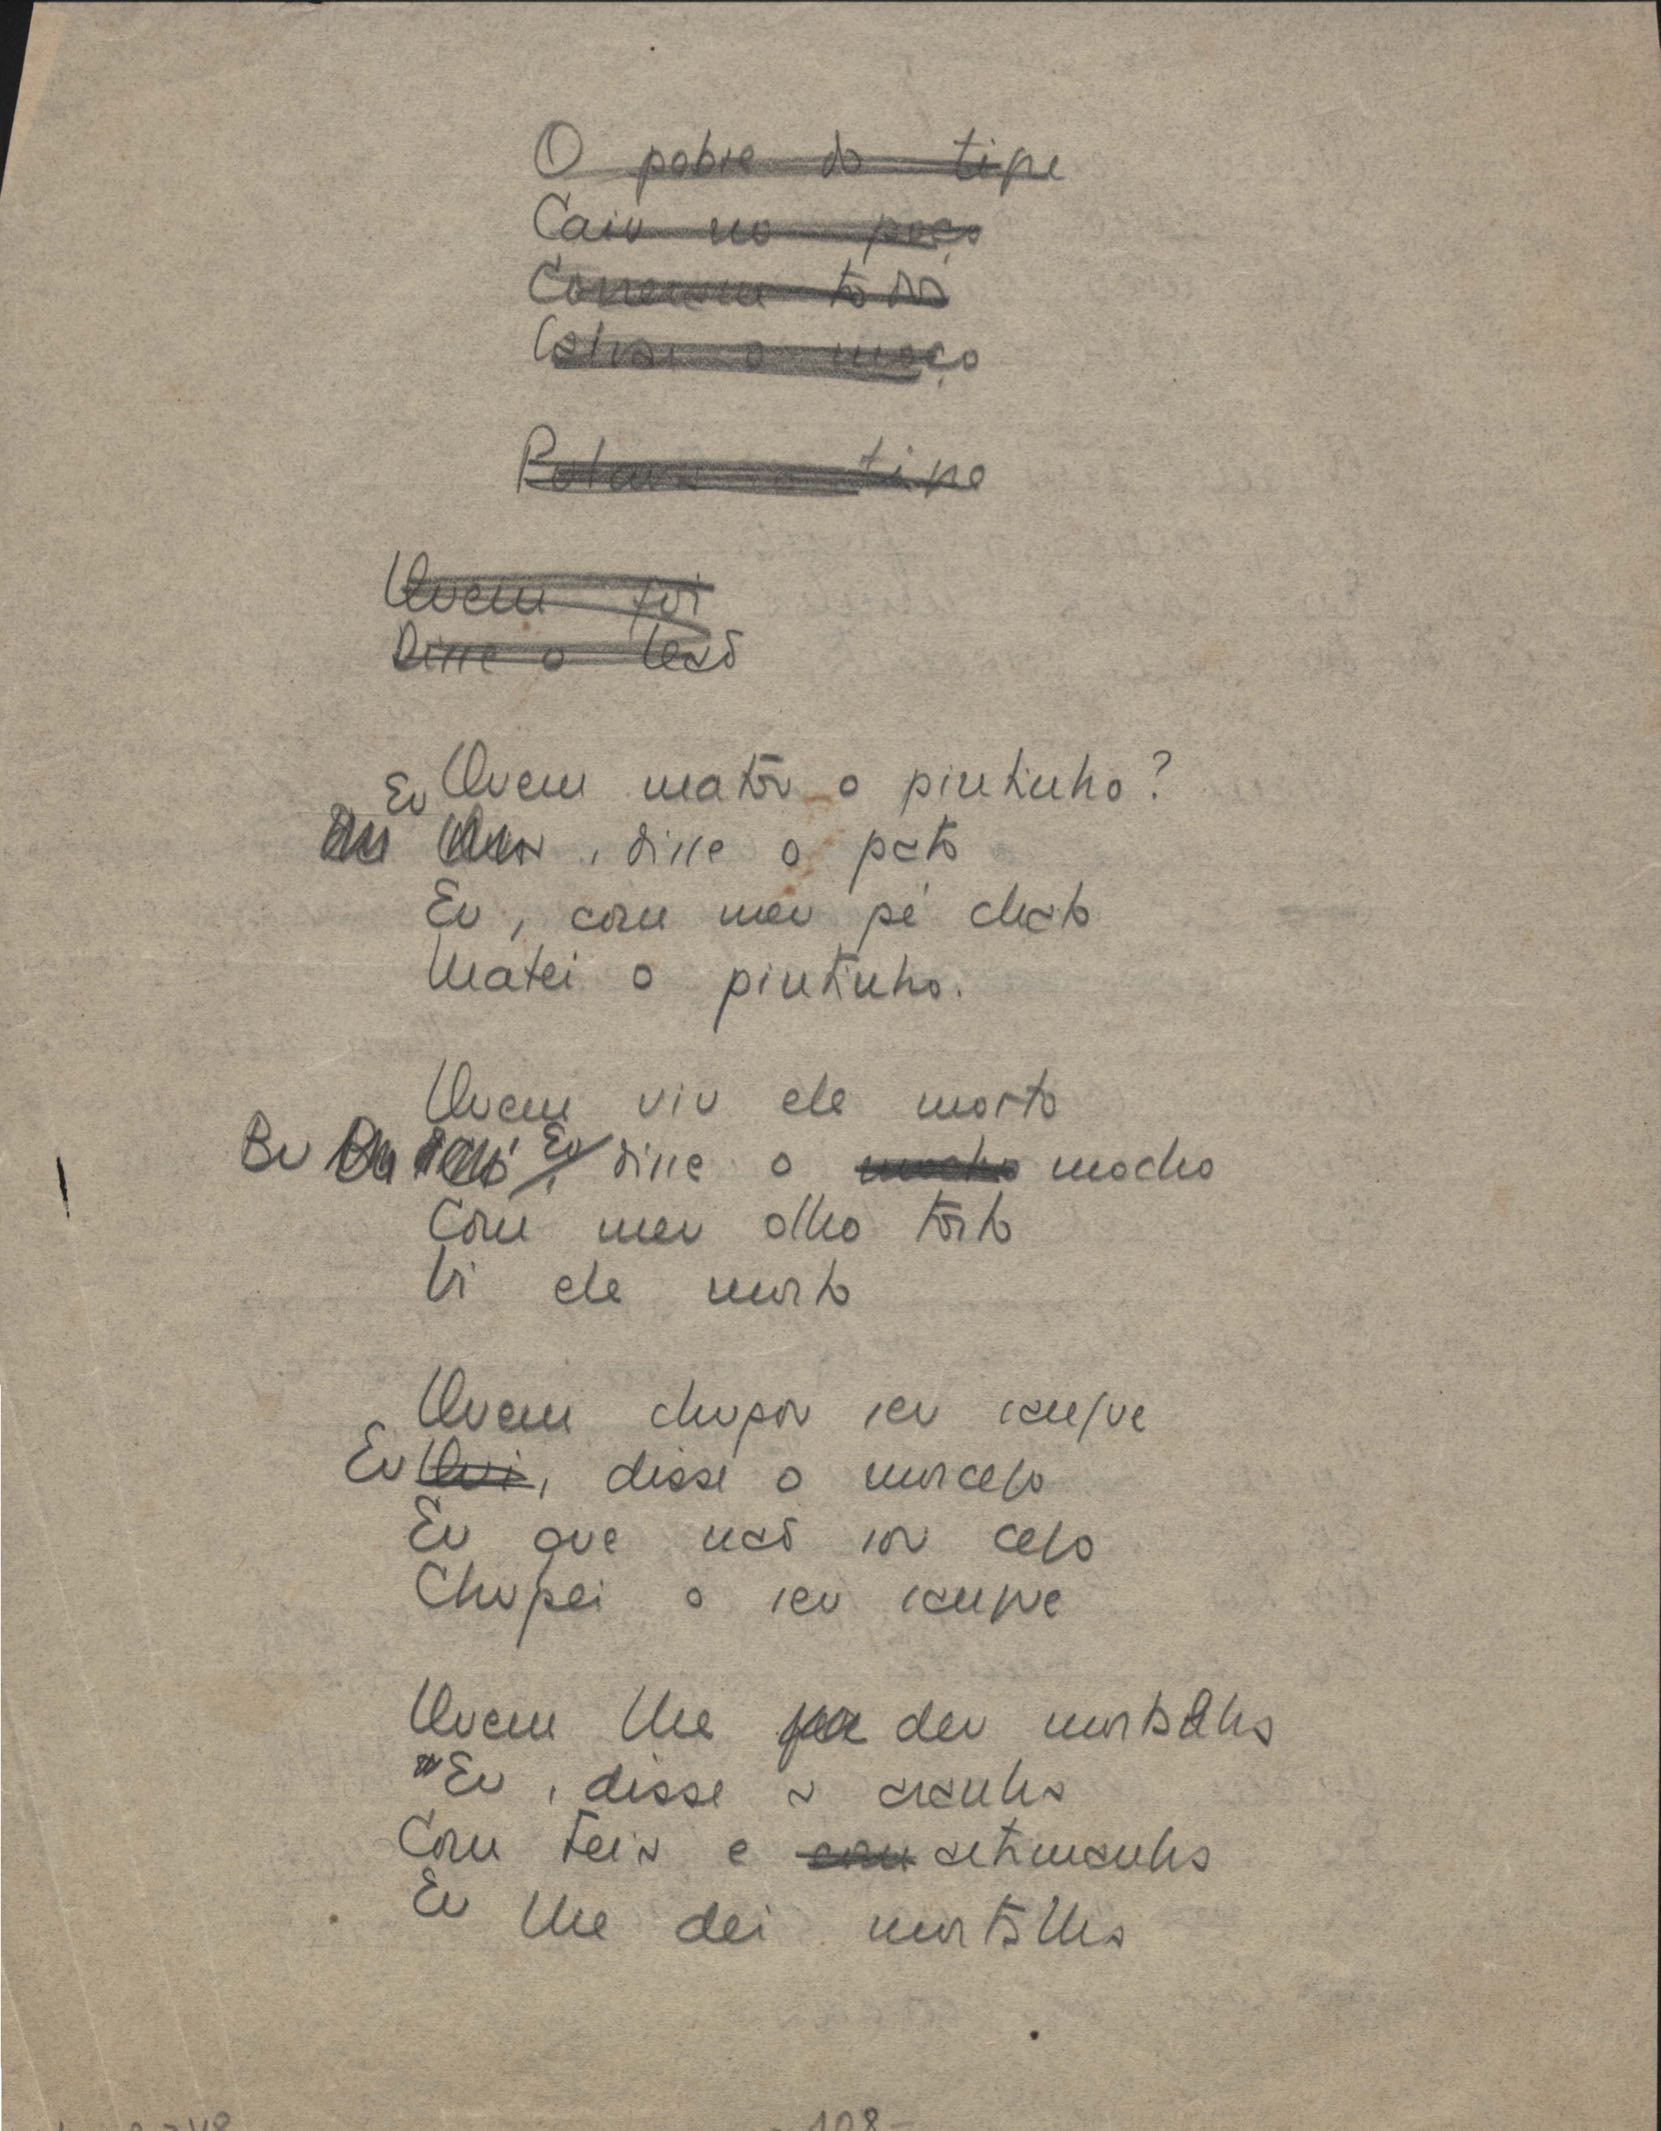 O pobre do tipe
Caiu no poço
Correram todos
o moço
tipo
Quem foi
Disse o leão
Quem matou o pintinho?
Eu
, disse o pato
Eu, com meu pé chato
Matei o pintinho.
Quem viu ele morto
Eu
Eu, disse o mocho mocho
Com meu olho torto
Vi ele morto
Quem chupou seu sangue
Eu Qui, disse o morcego
Eu que não sou cego
Chupei o seu sangue
Quem lhe deu mortalha
Eu, disse a aranha
Com teia e com artimanha
Eu lhe dei mortalha
- 108 -